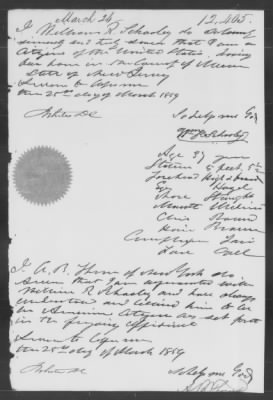 March 26 13,465.
I, William R. Schooley do solemnly
sincerely and truly swear that I am a
Citizen of the United States, having
been born in the County of
State of New Jersey
Sworn to before me
the 25th day of March 1859
So help me God
Wm R Schooley
Age 37 years
Stature 5 feet
Forehead High & broad
Eyes Hazel
Nose Straight
Mouth Medium
Chin Round
Hair Brown
Complexion Fair
Face Oval
I, A. R. of New York do
Swear that I am acquainted with
William R Schooley and have always
understood and believed him to
be an American Citizen as set forth
in the foregoing affidavit
Sworn to before me
the 25th day of March 1859
So help me God